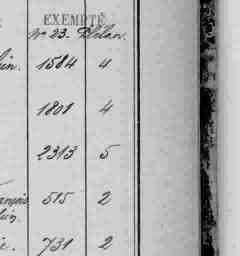 EXEMPTÉ
No. 23. Plélan.
lin. 1584 4
1801 4
2313 5
ançois
lin. 515 2
ie. 731 2